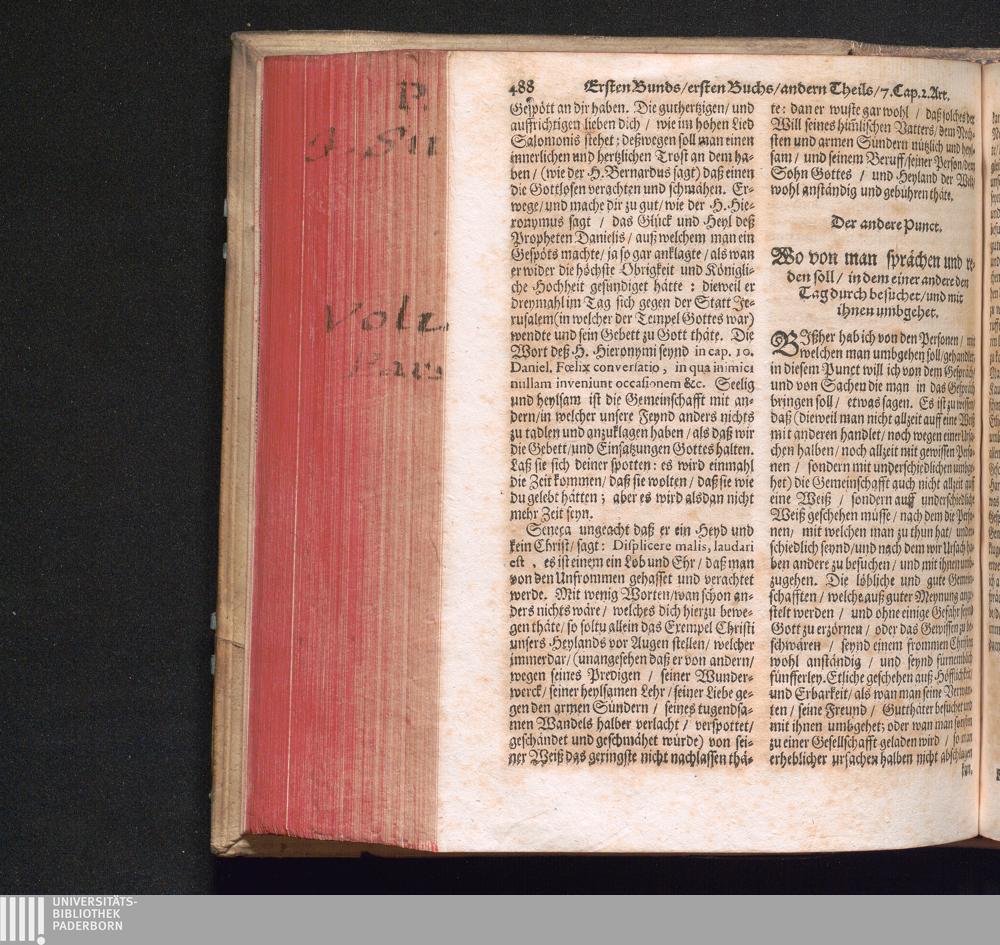 P.
Volu
Pars
488 Ersten Bunds/ersten Buchs/andern Theils/7.Cap.2.Art.
Gespött an dir haben. Die guthertzigen/ und
auffrichtigen lieben dich / wie im hohen Lied
Salomonis stehet; deßwegen soll man einen
innerlichen und hertzlichen Trost an dem ha-
ben/ (wie der H. Bernardus sagt) daß einen
die Gottlosen verachten und schmähen. Er-
wege/ und mache dir zu gut/ wie der H. Hie-
ronymus sagt / das Glück und Heyl deß
Propheten Danielis / auß welchem man ein
Gespöts machte/ ja so gar anklagte/ als wan
er wider die höchste Obrigkeit und Königli-
che Hochheit gesündiget hätte : dieweil er
dreymahl im Tag sich gegen der Statt Je-
rusalem (in welcher der Tempel Gottes war)
wendte und sein Gebett zu Gott thäte. Die
Wort deß H. Hieronymi seynd in cap. 10.
Daniel. Fœlix conversatio, in qua inimici
nullam inveniunt occasionem &c. Seelig
und heylsam ist die Gemeinschafft mit an-
dern/ in welcher unsere Feynd anders nichts
zu tadlen und anzuklagen haben / als daß wir
die Gebett/ und Einsatzungen Gottes halten.
Laß sie sich deiner spotten: es wird einmahl
die Zeit kommen/ daß sie wolten / daß sie wie
du gelebt hätten ; aber es wird alsdan nicht
mehr Zeit seyn.
Seneca ungeacht daß er ein Heyd und
kein Christ/ sagt: Displicere malis, laudari
est , es ist einem ein Lob und Ehr / daß man
von den Unfrommen gehasset und verachtet
werde. Mit wenig Worten/ wan schon an-
ders nichts wäre / welches dich hierzu bewe-
gen thäte/ so soltu allein das Exempel Christi
unsers Heylands vor Augen stellen/ welcher
immerdar/ (unangesehen daß er von andern/
wegen seines Predigen / seiner Wunder-
werck/ seiner heylsamen Lehr / seiner Liebe ge-
gen den armen Sündern / seines tugendsa-
men Wandels halber verlacht / verspottet/
geschändet und geschmähet würde) von sei-
ner Weiß das geringste nicht nachlassen thä-
te: dan er wuste gar wohl / daß solches der
Will seines himlischen Vatters/ dem Nech-
sten und armen Sündern nützlich und heyl-
sam/ und seinem Beruff/ seiner Person/ dem
Sohn Gottes / und Heyland der Welt/
wohl anständig und gebühren thäte.
Der andere Punct.
Wo von man sprächen und re-
den soll / in dem einer andere den
Tag durch besuchet/ und mit
ihnen umbgehet.
BIßher hab ich von den Personen / mit
welchen man umbgehen soll/ gehandlet/
in diesem Punct will ich von dem Gespräch
und von Sachen die man in das Gespräch
bringen soll / etwas sagen. Es ist zu wissen/
daß (dieweil man nicht allzeit auff eine Weiß
mit anderen handlet/ noch wegen einer Ursa-
chen halben/ noch allzeit mit gewissen Perso-
nen / sondern mit underschiedlichen umbge-
het) die Gemeinschafft auch nicht allzeit auff
eine Weiß / sondern auff underschiedliche
Weiß geschehen müsse / nach dem die Perso-
nen/ mit welchen man zu thun hat/ under-
schiedlich seynd/ und nach dem wir Ursach ha-
ben andere zu besuchen / und mit ihnen umb-
zugehen. Die löbliche und gute Gemein-
schafften / welche auß guter Meynung ange-
stelt werden / und ohne einige Gefahr seynd
Gott zu erzörnen / oder das Gewissen zu be-
schwären / seynd einem frommen Christen
wohl anständig / und seynd fürnemblich
fünfferley. Etliche geschehen auß Höfflichkeit
und Erbarkeit/ als wan man seine Verwan-
ten / seine Freund / Gutthäter besuchet und
mit ihnen umbgehet; oder wan man sonsten
zu einer Gesellschafft geladen wird / so man
erheblicher ursachen halben nicht abschlagen
kan.
UNIVERSITÄTS-
BIBLIOTHEK
PADERBORN